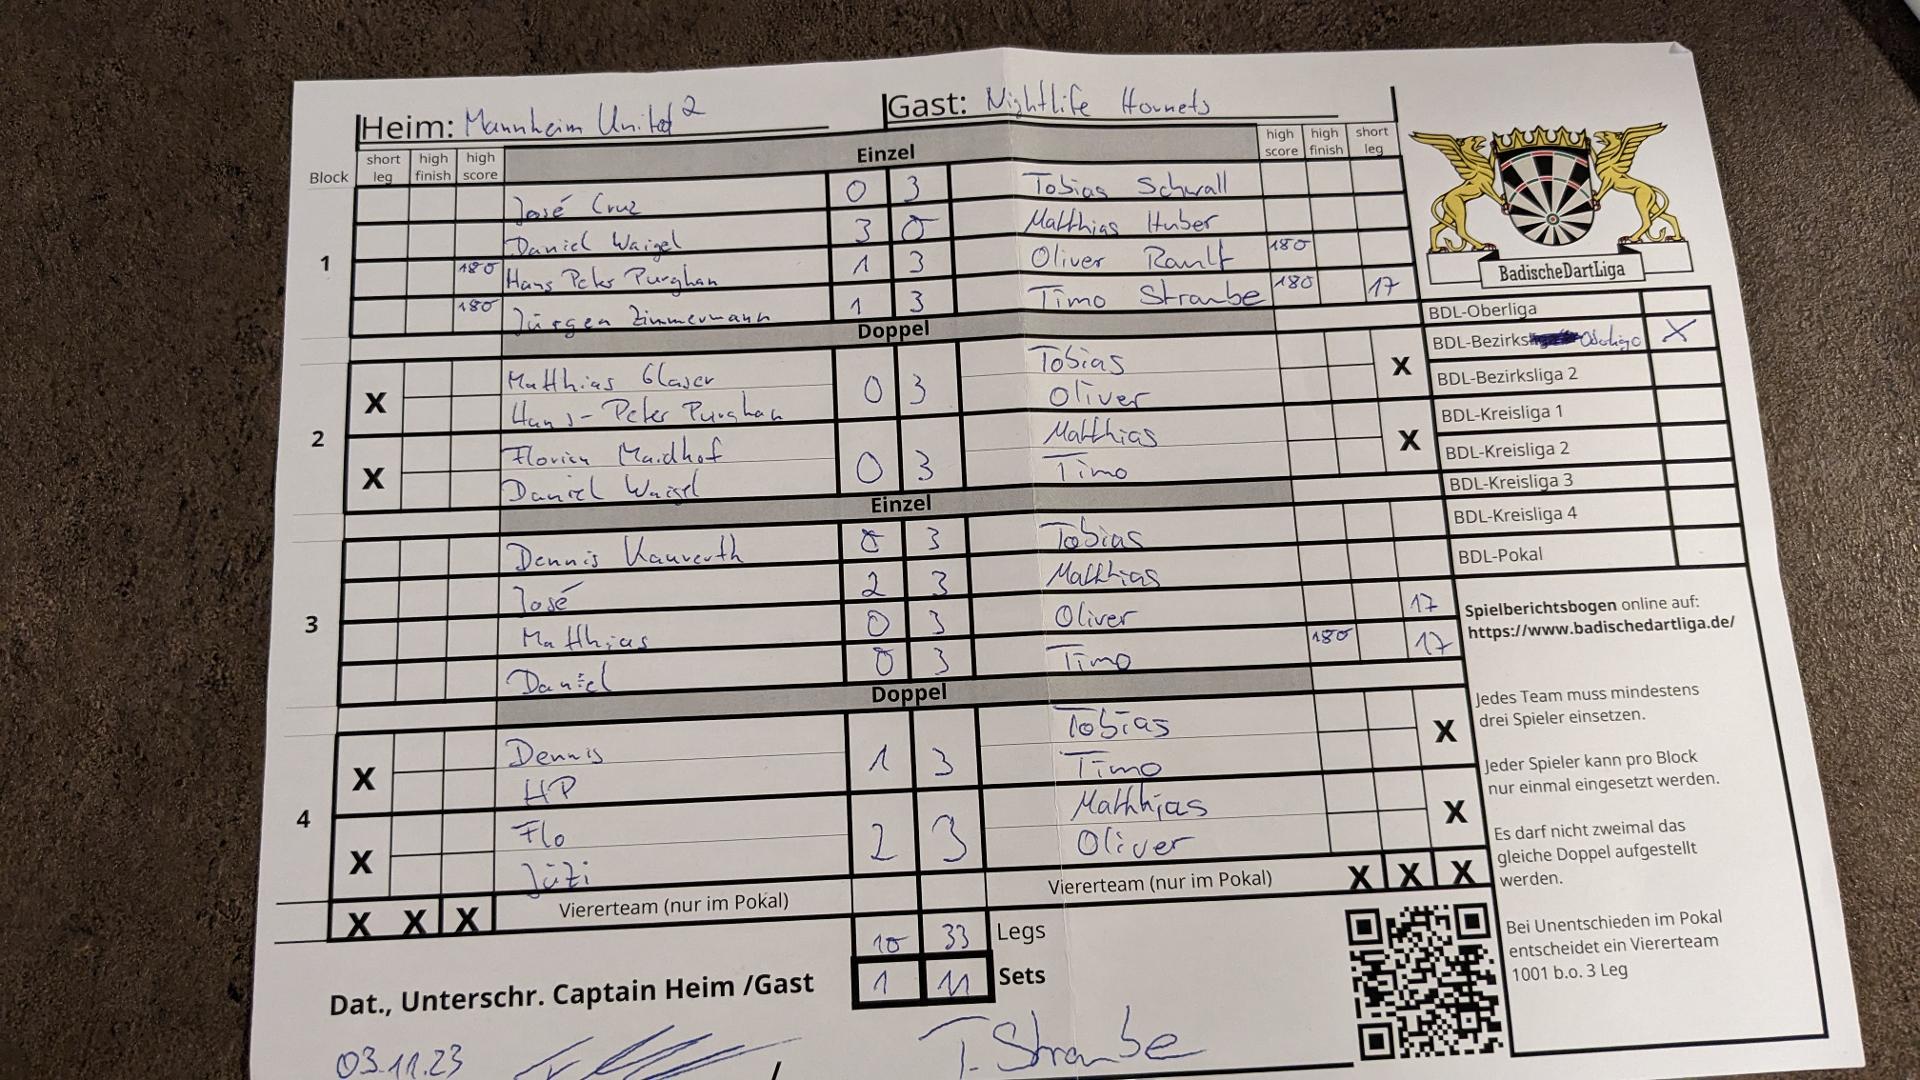 Heim: Mannheim United 2 Gast: Nightlife Hornets
Block short leg high finish high score Einzel high score high finish short leg
1
José Cruz 0 3 Tobias Schwall
Daniel Waigel 3 0 Matthias Huber
180 Hans Peter Purghan 1 3 Oliver Ranlf 180
180 Jürgen Zimmermann 1 3 Timo Straube 180 17
Doppel
2
X Matthias Glaser 0 3 Tobias X
Hans-Peter Purghan Oliver
X Florian Maidhof 0 3 Matthias X
Daniel Waigel Timo
Einzel
3
Dennis 0 3 Tobias
José 2 3 Matthias
Matthias 0 3 Oliver 17
Daniel 0 3 Timo 180 17
Doppel
4
X Dennis 1 3 Tobias X
HP Timo
X Flo 2 3 Matthias X
Jüzi Oliver
X X X Viererteam (nur im Pokal) Viererteam (nur im Pokal) X X X
10 33 Legs
1 11 Sets
Dat., Unterschr. Captain Heim /Gast
03.11.23 / T. Straube
BadischeDartLiga
BDL-Oberliga
BDL-Bezirks Oberliga X
BDL-Bezirksliga 2
BDL-Kreisliga 1
BDL-Kreisliga 2
BDL-Kreisliga 3
BDL-Kreisliga 4
BDL-Pokal
Spielberichtsbogen online auf:
https://www.badischedartliga.de/
Jedes Team muss mindestens
drei Spieler einsetzen.
Jeder Spieler kann pro Block
nur einmal eingesetzt werden.
Es darf nicht zweimal das
gleiche Doppel aufgestellt
werden.
Bei Unentschieden im Pokal
entscheidet ein Viererteam
1001 b.o. 3 Leg